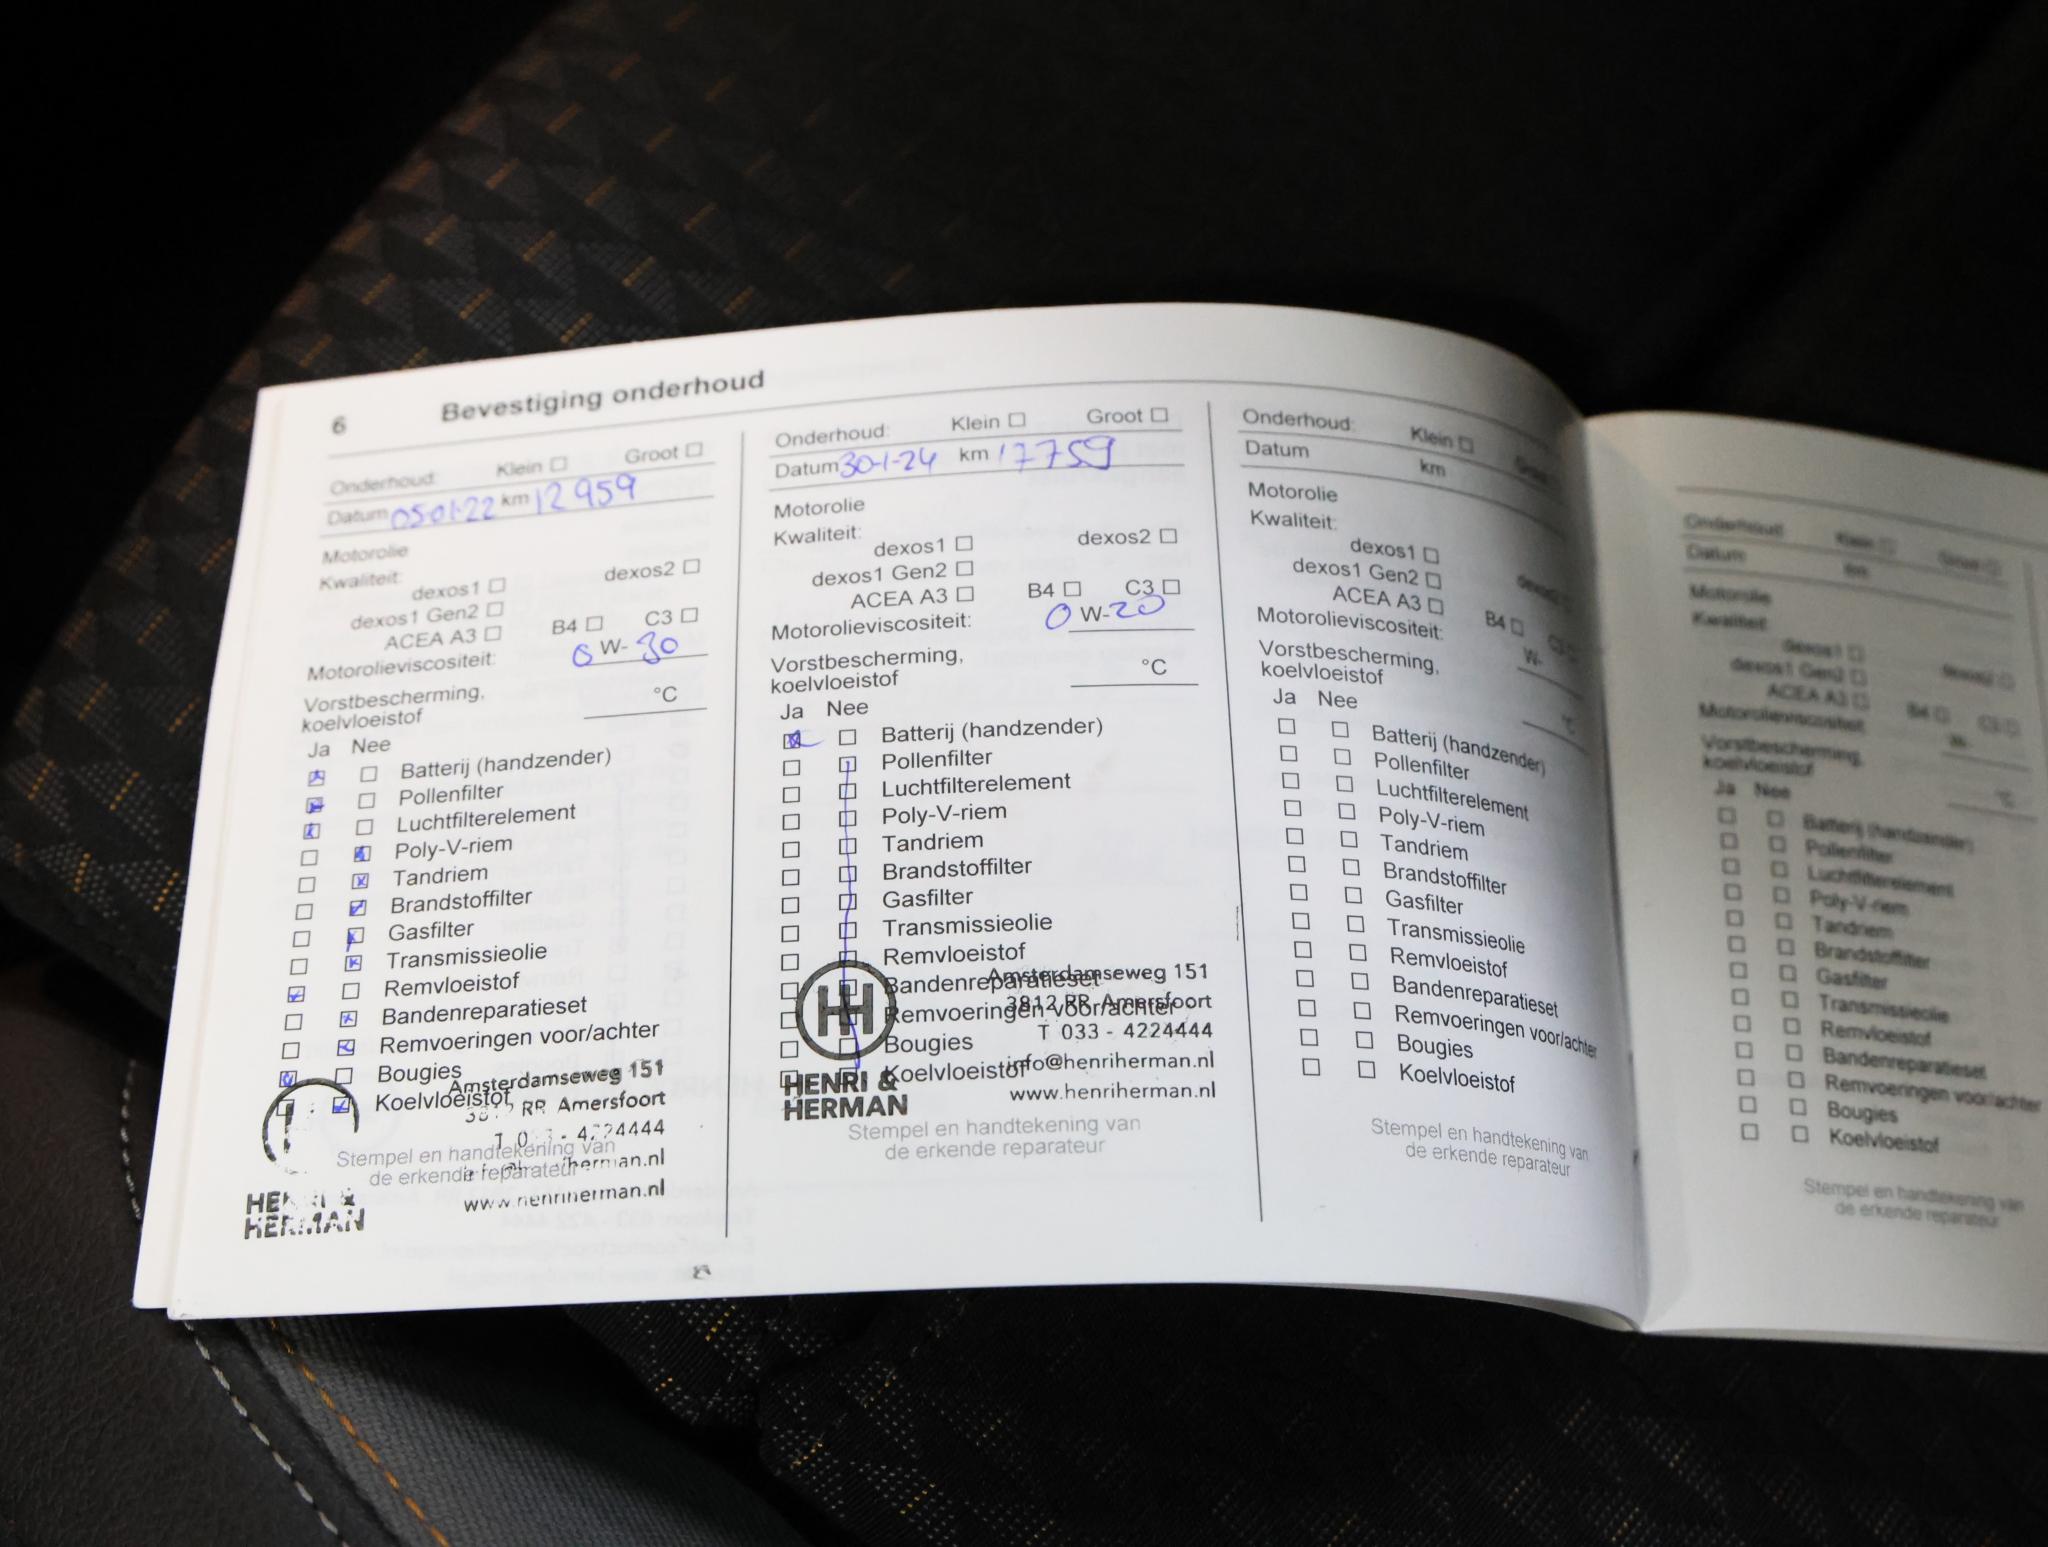 6 Bevestiging onderhoud
Onderhoud: Klein ☐ Groot ☐
Datum 05-01-22 km 12959
Motorolie
Kwaliteit:
dexos1 ☐ dexos2 ☐
dexos1 Gen2 ☐
ACEA A3 ☐ B4 ☐ C3 ☐
Motorolieviscositeit: 0 W- 30
Vorstbescherming,
koelvloeistof °C
Ja Nee
Batterij (handzender)
Pollenfilter
Luchtfilterelement
Poly-V-riem
Tandriem
Brandstoffilter
Gasfilter
Transmissieolie
Remvloeistof
Bandenreparatieset
Remvoeringen voor/achter
Bougies
Koelvloeistof
Amsterdamseweg 151
3812 RR Amersfoort
4224444
herman.nl
www.henriherman.nl
HENRI &
HERMAN
Stempel en handtekening van
de erkende reparateur
Onderhoud: Klein ☐ Groot ☐
Datum 30-1-24 km 17759
Motorolie
Kwaliteit:
dexos1 ☐ dexos2 ☐
dexos1 Gen2 ☐
ACEA A3 ☐ B4 ☐ C3 ☐
Motorolieviscositeit: 0 W-20
Vorstbescherming,
koelvloeistof °C
Ja Nee
Batterij (handzender)
Pollenfilter
Luchtfilterelement
Poly-V-riem
Tandriem
Brandstoffilter
Gasfilter
Transmissieolie
Remvloeistof
Bandenreparatieset
Remvoeringen voor/achter
Bougies
Koelvloeistof
HH
HENRI &
HERMAN
Amsterdamseweg 151
3812 RR Amersfoort
T 033 - 4224444
info@henriherman.nl
www.henriherman.nl
Stempel en handtekening van
de erkende reparateur
Onderhoud: Klein ☐ Groot
Datum km
Motorolie
Kwaliteit:
dexos1 ☐ dexos2
dexos1 Gen2 ☐
ACEA A3 ☐ B4 ☐ C3 ☐
Motorolieviscositeit: W-
Vorstbescherming,
koelvloeistof °C
Ja Nee
Batterij (handzender)
Pollenfilter
Luchtfilterelement
Poly-V-riem
Tandriem
Brandstoffilter
Gasfilter
Transmissieolie
Remvloeistof
Bandenreparatieset
Remvoeringen voor/achter
Bougies
Koelvloeistof
Stempel en handtekening van
de erkende reparateur
Onderhoud: Klein ☐ Groot ☐
Datum km
Motorolie
Kwaliteit:
dexos1 ☐ dexos2 ☐
dexos1 Gen2 ☐
ACEA A3 ☐ B4 ☐ C3 ☐
Motorolieviscositeit: W-
Vorstbescherming,
koelvloeistof °C
Ja Nee
Batterij (handzender)
Pollenfilter
Luchtfilterelement
Poly-V-riem
Tandriem
Brandstoffilter
Gasfilter
Transmissieolie
Remvloeistof
Bandenreparatieset
Remvoeringen voor/achter
Bougies
Koelvloeistof
Stempel en handtekening van
de erkende reparateur